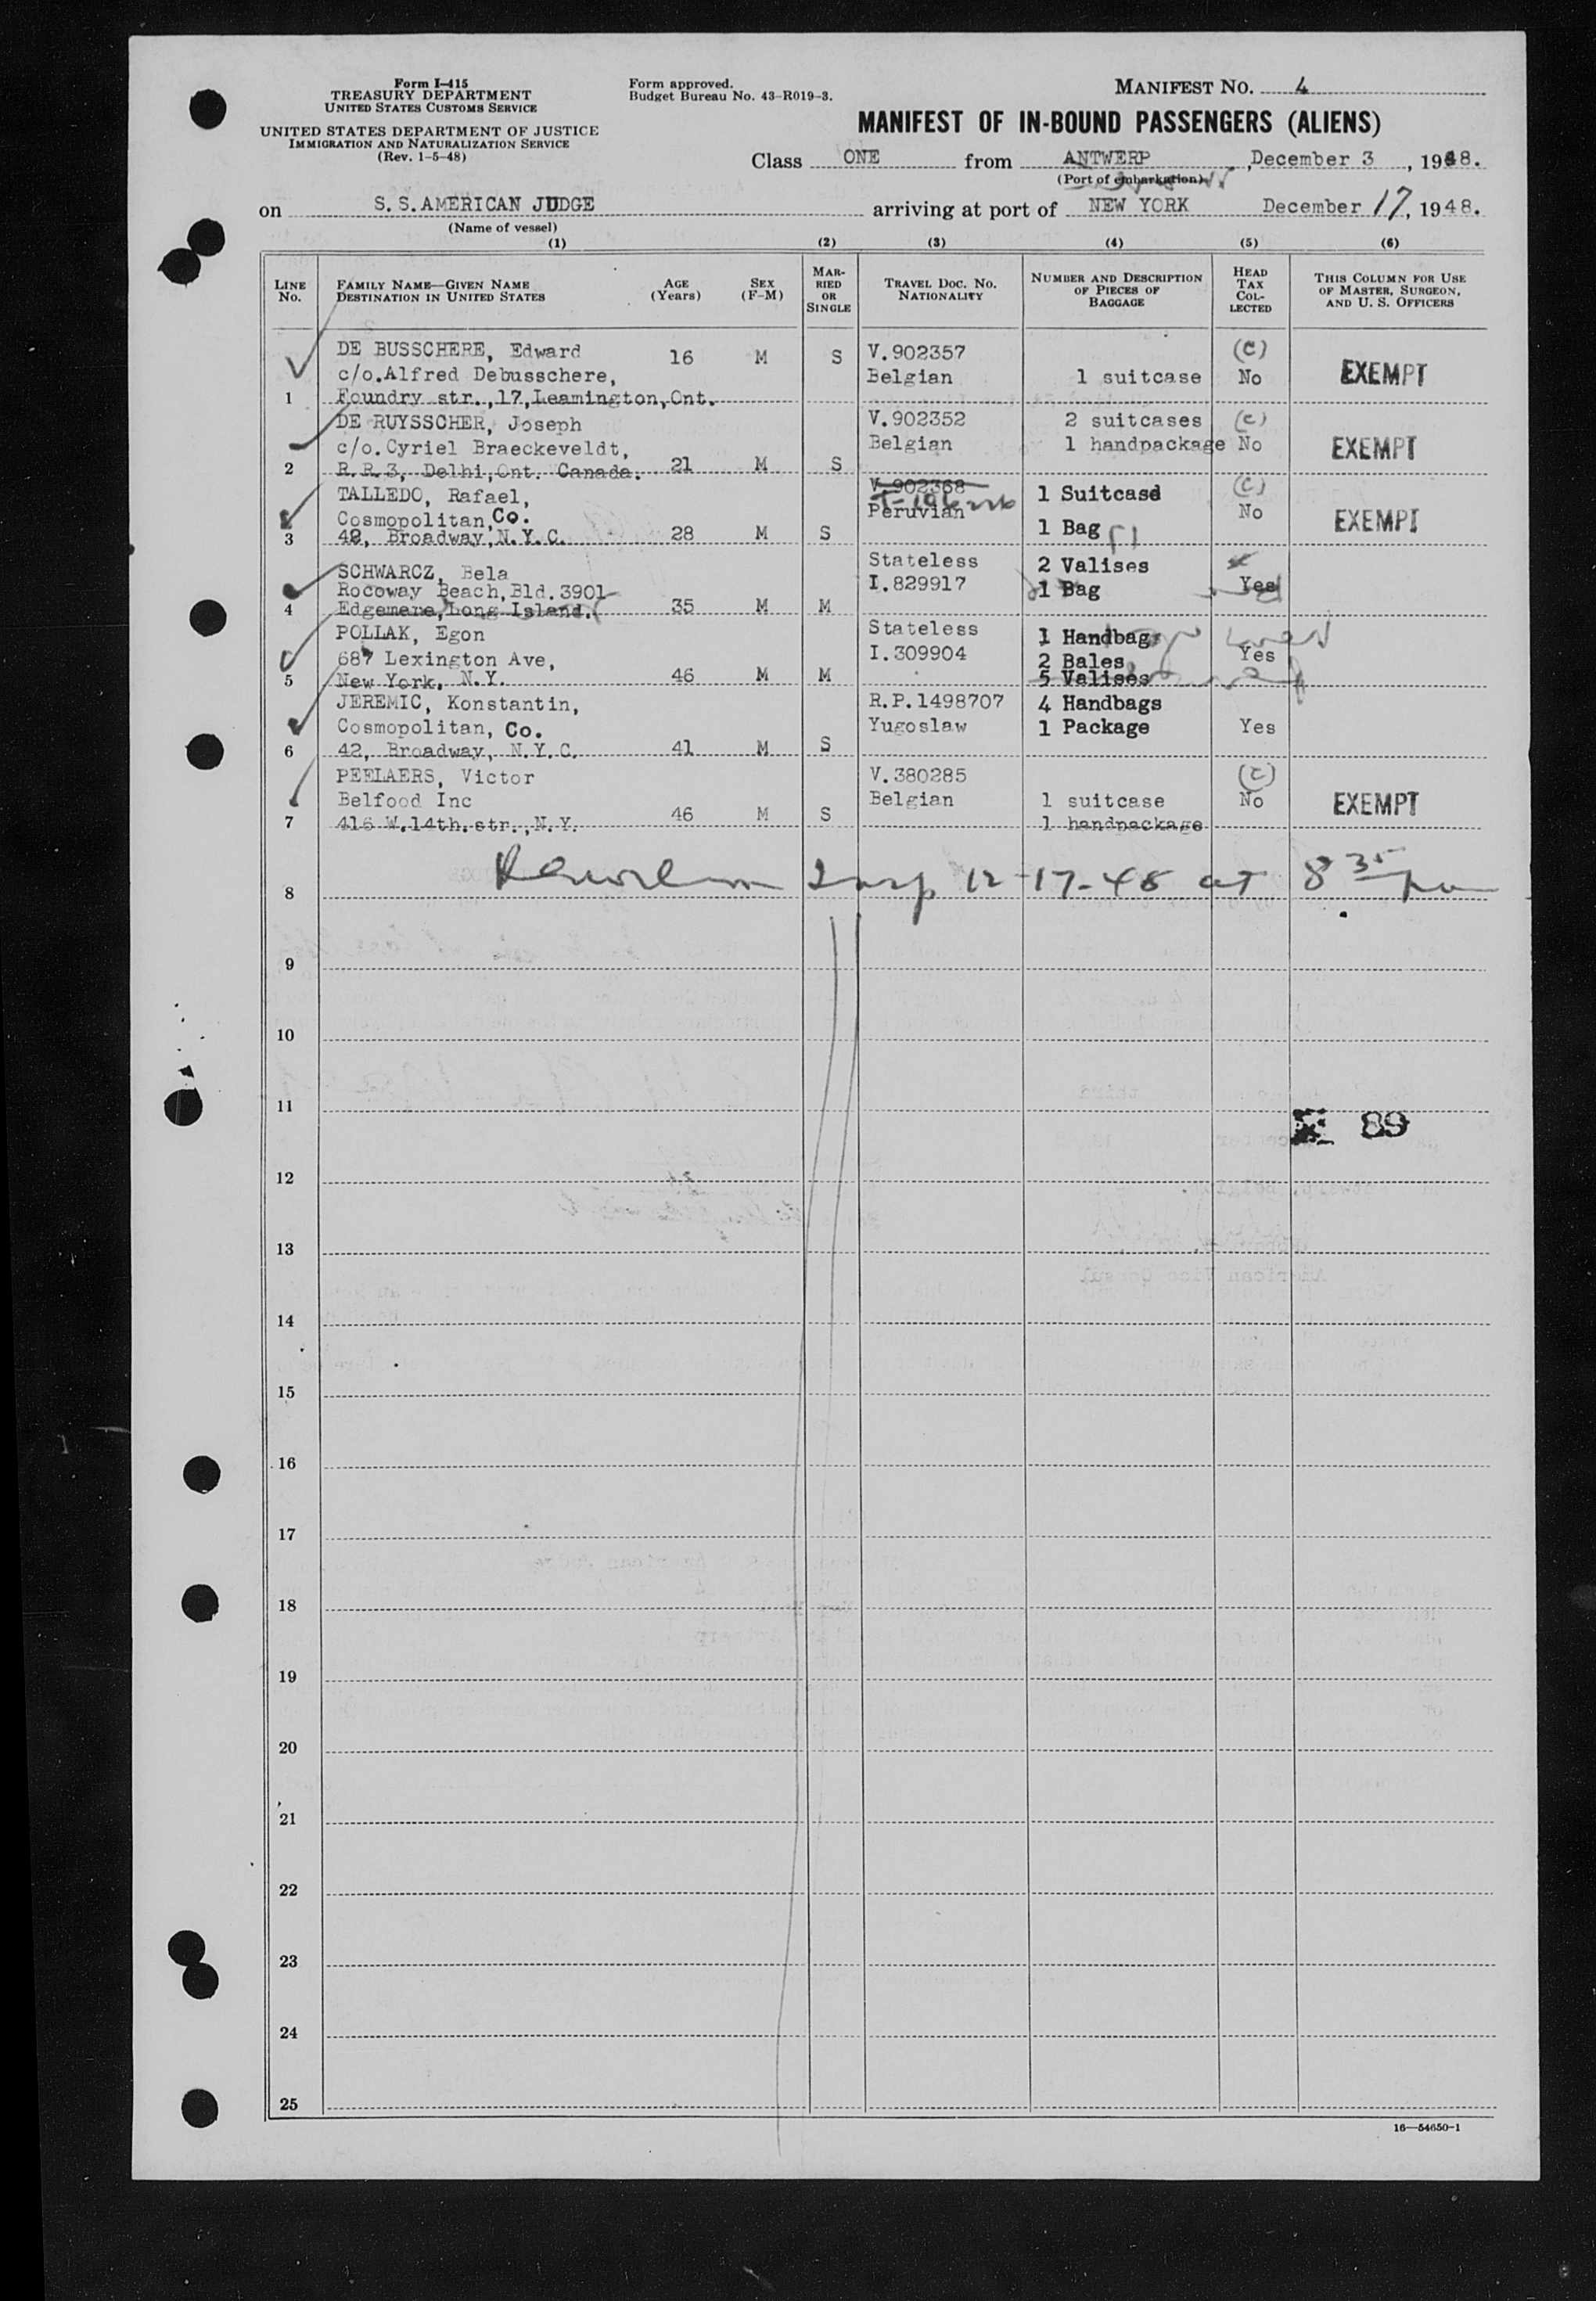 Form I-415
TREASURY DEPARTMENT
UNITED STATES CUSTOMS SERVICE
UNITED STATES DEPARTMENT OF JUSTICE
IMMIGRATION AND NATURALIZATION SERVICE
(Rev. 1-5-48)
Form approved.
Budget Bureau No. 43-R019-3.
MANIFEST NO. 4
MANIFEST OF IN-BOUND PASSENGERS (ALIENS)
Class ONE from ANTWERP, December 3, 1948.
(Port of embarkation)
on S.S.AMERICAN JUDGE arriving at port of NEW YORK December 17, 1948.
(Name of vessel)
(1) (2) (3) (4) (5) (6)
LINE No.
FAMILY NAME—GIVEN NAME
DESTINATION IN UNITED STATES
AGE (Years)
SEX (F-M)
MARRIED OR SINGLE
TRAVEL DOC. NO. NATIONALITY
NUMBER AND DESCRIPTION OF PIECES OF BAGGAGE
HEAD TAX COLLECTED
THIS COLUMN FOR USE OF MASTER, SURGEON, AND U. S. OFFICERS
DE BUSSCHERE, Edward 16 M S V.902357 (C)
c/o.Alfred Debusschere, Belgian 1 suitcase No EXEMPT
1 Foundry str.,17,Leamington,Ont.
DE RUYSSCHER, Joseph V.902352 2 suitcases (c)
c/o.Cyriel Braeckeveldt, Belgian 1 handpackage No EXEMPT
2 R.R.3, Delhi,Ont. Canada. 21 M S
TALLEDO, Rafael, V.902368 1 Suitcase (C)
Cosmopolitan,Co. Peruvian No EXEMPT
3 42, Broadway,N.Y.C. 28 M S 1 Bag
SCHWARCZ, Bela Stateless 2 Valises
Rocoway Beach,Bld.3901 I.829917 1 Bag Yes
4 Edgemere,Long Island. 35 M M
POLLAK, Egon Stateless 1 Handbag
687 Lexington Ave, I.309904 2 Bales Yes
5 New York, N.Y. 46 M M 5 Valises
JEREMIC, Konstantin, R.P.1498707 4 Handbags
Cosmopolitan, Co. Yugoslaw 1 Package Yes
6 42, Broadway, N.Y.C. 41 M S
PEELAERS, Victor V.380285 (c)
Belfood Inc Belgian 1 suitcase No EXEMPT
7 416 W.14th.str.,N.Y. 46 M S 1 handpackage
8 Insp 12-17-48 at 8 35 pm
9
10
11
89
12
13
14
15
16
17
18
19
20
21
22
23
24
25
16—54650-1